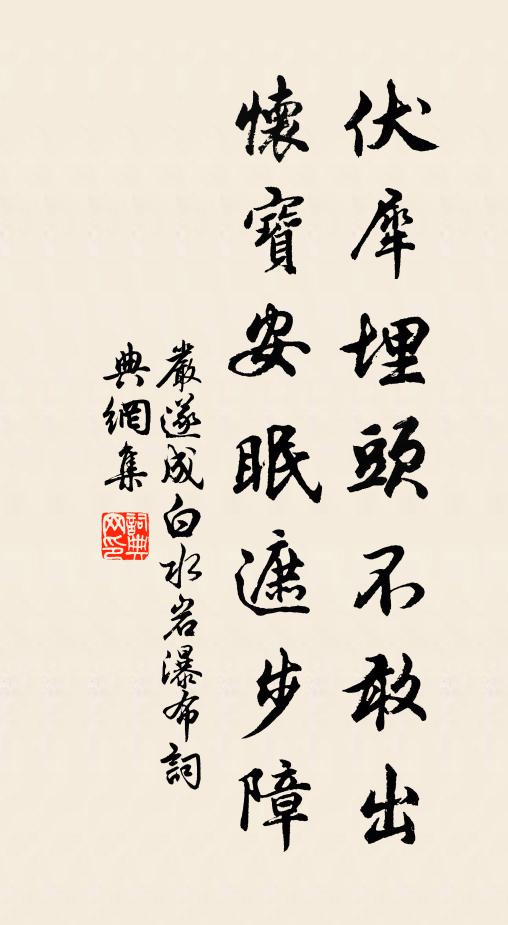 伏犀埋頭不敢出
懷寶安眠遮步障
嚴遂成白水岩瀑布詞
典網集
詞典網印